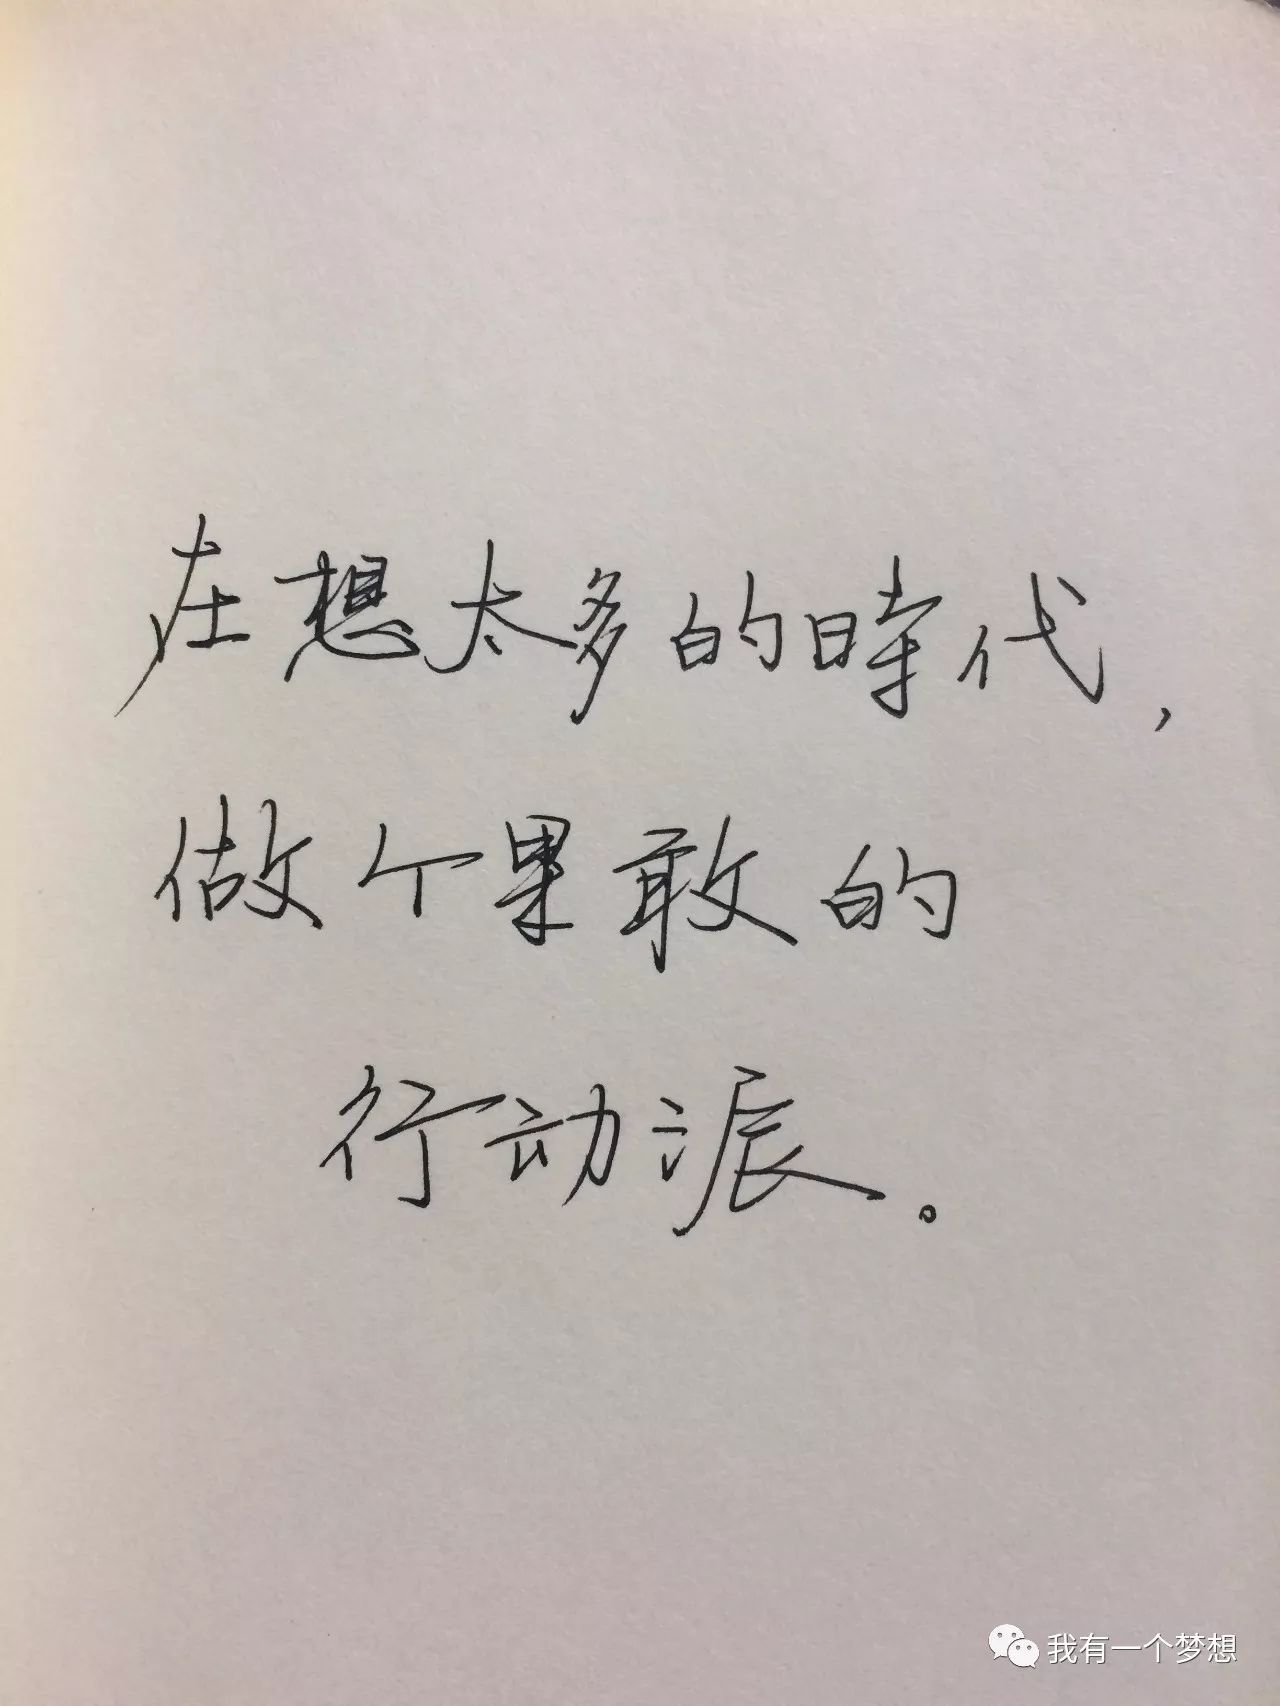 在想太多的時代，
做个果敢的
行动派。
我有一个梦想